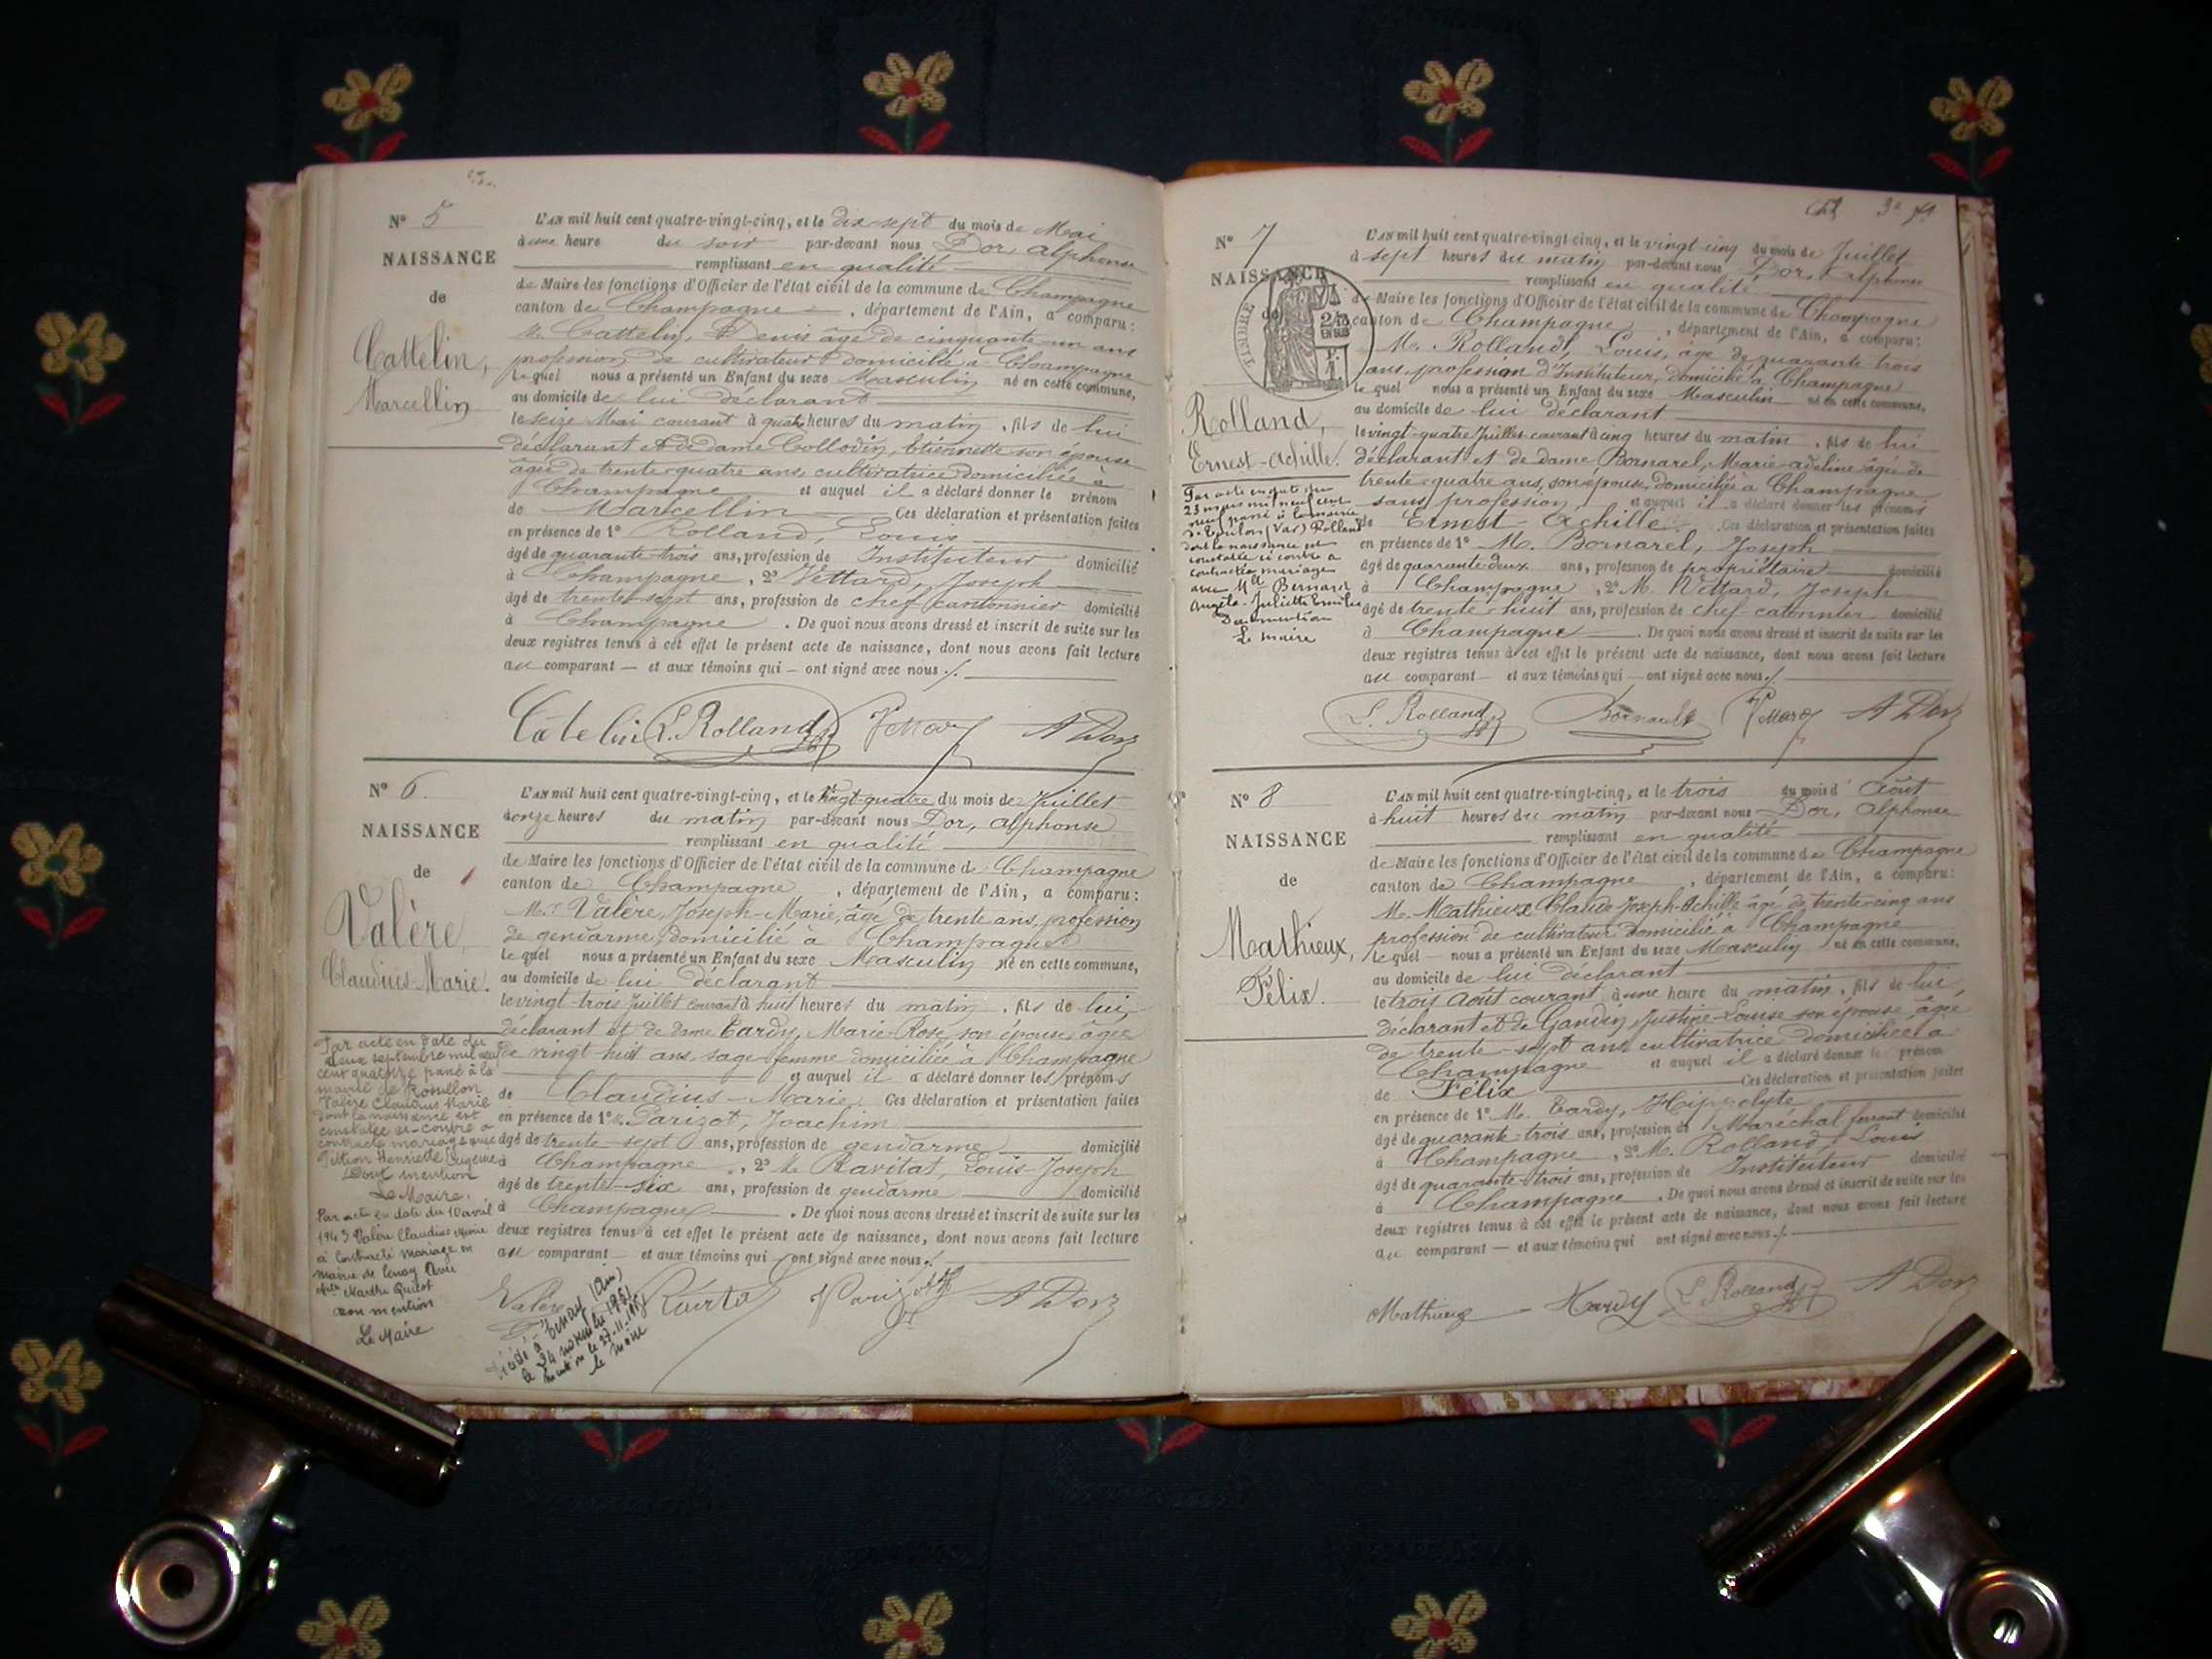 N° 5
NAISSANCE
de
Cattelin,
Marcellin
L'AN mil huit cent quatre-vingt-cinq, et le dix-sept du mois de Mai
à une heure du soir par-devant nous Dor, Alphonse
remplissant en qualité
de Maire les fonctions d'Officier de l'état civil de la commune de Champagne
canton de Champagne, département de l'Ain, a comparu:
M. Cattelin, Denis âgé de cinquante-un ans
profession de cultivateur domicilié à Champagne
lequel nous a présenté un Enfant du sexe Masculin né en cette commune,
au domicile de lui déclarant
le seize Mai courant à quatre heures du matin, fils de lui
déclarant et de dame Collodin, Etiennette son épouse
âgée de trente-quatre ans, cultivatrice domiciliée à
Champagne et auquel il a déclaré donner le prénom
de Marcellin Ces déclaration et présentation faites
en présence de 1° Rolland, Louis
âgé de quarante-trois ans, profession de Instituteur domicilié
à Champagne, 2° Vettard, Joseph
âgé de trente-sept ans, profession de chef cantonnier domicilié
à Champagne. De quoi nous avons dressé et inscrit de suite sur les
deux registres tenus à cet effet le présent acte de naissance, dont nous avons fait lecture
au comparant — et aux témoins qui — ont signé avec nous ./.
Catelin L. Rolland Vettard A Dor
N° 6
NAISSANCE
de
Valère,
Claudius-Marie.
L'AN mil huit cent quatre-vingt-cinq, et le vingt-quatre du mois de Juillet
à onze heures du matin par-devant nous Dor, Alphonse
remplissant en qualité
de Maire les fonctions d'Officier de l'état civil de la commune de Champagne
canton de Champagne, département de l'Ain, a comparu:
M. Valère, Joseph-Marie, âgé de trente ans, profession
de gendarme, domicilié à Champagne
lequel nous a présenté un Enfant du sexe Masculin né en cette commune,
au domicile de lui déclarant
le vingt-trois Juillet courant à huit heures du matin, fils de lui,
déclarant et de dame Tardy, Marie-Rose, son épouse, âgée
de vingt-huit ans, sage-femme domiciliée à Champagne
et auquel il a déclaré donner les prénoms
de Claudius-Marie. Ces déclaration et présentation faites
en présence de 1° M. Parizot, Joachim
âgé de trente-sept ans, profession de gendarme domicilié
à Champagne, 2° M. Ravitat, Louis-Joseph
âgé de trente-six ans, profession de gendarme domicilié
à Champagne. De quoi nous avons dressé et inscrit de suite sur les
deux registres tenus à cet effet le présent acte de naissance, dont nous avons fait lecture
au comparant — et aux témoins qui — ont signé avec nous ./.
Valère Parizot A Dor
Par acte en date du
deux septembre mil neuf
cent quatorze passé à la
mairie de Rossillon
Valère Claudius Marie
dont la naissance est
constatée ci-contre a
contracté mariage avec
Henriette Eugénie
Dont mention
Le Maire.
Par acte en date du 10 avril
1943 Valère Claudius Marie
a contracté mariage en
mairie de Tenay avec
Marthe
Dont mention
Le Maire
Décédé à Tenay (Ain)
le 24 novembre 1951
mention le 27-11-1951
le Maire
N° 7
NAISSANCE
de
TIMBRE
Rolland,
Ernest-Achille.
L'AN mil huit cent quatre-vingt-cinq, et le vingt-cinq du mois de Juillet
à sept heures du matin par-devant nous Dor, Alphonse
remplissant en qualité
de Maire les fonctions d'Officier de l'état civil de la commune de Champagne
canton de Champagne, département de l'Ain, a comparu:
M. Rolland, Louis, âgé de quarante trois
ans, profession d'Instituteur, domicilié à Champagne
lequel nous a présenté un Enfant du sexe Masculin né en cette commune,
au domicile de lui déclarant
le vingt-quatre Juillet courant à cinq heures du matin, fils de lui
déclarant et de dame Bornarel, Marie-Adeline âgée de
trente-quatre ans, son épouse, domiciliée à Champagne
sans profession, et auquel il a déclaré donner les prénoms
de Ernest-Achille. Ces déclaration et présentation faites
en présence de 1° M. Bornarel, Joseph
âgé de quarante deux ans, profession de propriétaire domicilié
à Champagne, 2° M. Vettard, Joseph
âgé de trente-huit ans, profession de chef catonnier domicilié
à Champagne. De quoi nous avons dressé et inscrit de suite sur les
deux registres tenus à cet effet le présent acte de naissance, dont nous avons fait lecture
au comparant — et aux témoins qui — ont signé avec nous ./.
L. Rolland Vettard A Dor
Par acte en date du
23 mars mil neuf cent
neuf passé à la mairie
de Toulon (Var) Rolland
dont la naissance est
constatée ci contre a
contracté mariage
avec Mlle Bernard
Angèle-Juliette Emilie
Dont mention
Le maire
N° 8
NAISSANCE
de
Mathieux,
Félix.
L'AN mil huit cent quatre-vingt-cinq, et le trois du mois d'Août
à huit heures du matin par-devant nous Dor, Alphonse
remplissant en qualité
de Maire les fonctions d'Officier de l'état civil de la commune de Champagne
canton de Champagne, département de l'Ain, a comparu:
M. Mathieux Claude-Joseph-Achille âgé de trente-cinq ans
profession de cultivateur domicilié à Champagne
lequel — nous a présenté un Enfant du sexe Masculin né en cette commune,
au domicile de lui déclarant
le trois Août courant à une heure du matin, fils de lui,
déclarant et de Gandin, Justine-Louise son épouse, âgée
de trente-sept ans cultivatrice domiciliée à
Champagne et auquel il a déclaré donner le prénom
de Félix Ces déclaration et présentation faites
en présence de 1° M. Tardy, Hippolyte
âgé de quarante-trois ans, profession de Maréchal ferrant domicilié
à Champagne, 2° M. Rolland, Louis
âgé de quarante-trois ans, profession de Instituteur domicilié
à Champagne. De quoi nous avons dressé et inscrit de suite sur les
deux registres tenus à cet effet le présent acte de naissance, dont nous avons fait lecture
au comparant — et aux témoins qui ont signé avec nous ./.
Mathieux Tardy L. Rolland A Dor